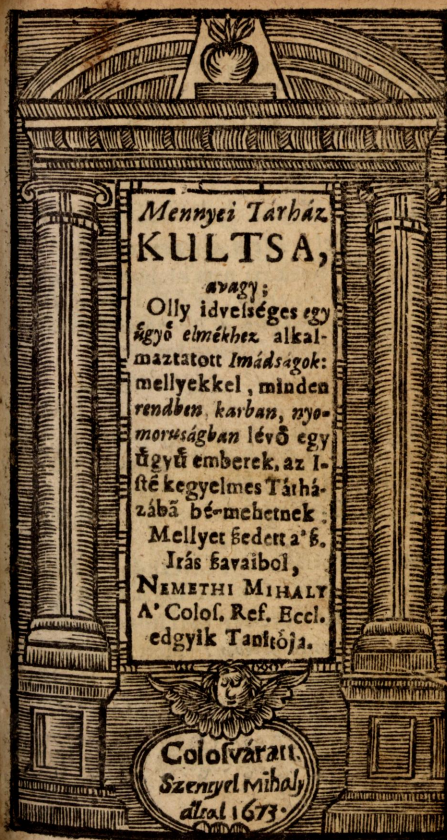 Mennyei Tárház
KULTSA,
avagy;
Olly idvelséges egy
ůgyő elmékhez alkal-
maztatott Imádságok:
mellyekkel, minden
rendben, karban, nyo-
moruságban lévő egy
ůgyű emberek, az I-
stē kegyelmes Tárhá-
zábā bé-mehetnek:
Mellyet ßedett a' ß.
Irás ßavaibol,
NEMETHI MIHALY
A' Colos. Ref. Eccl.
edgyik Tanitòja.
Colosváratt.
Szentyel Mihaly
által 1673.